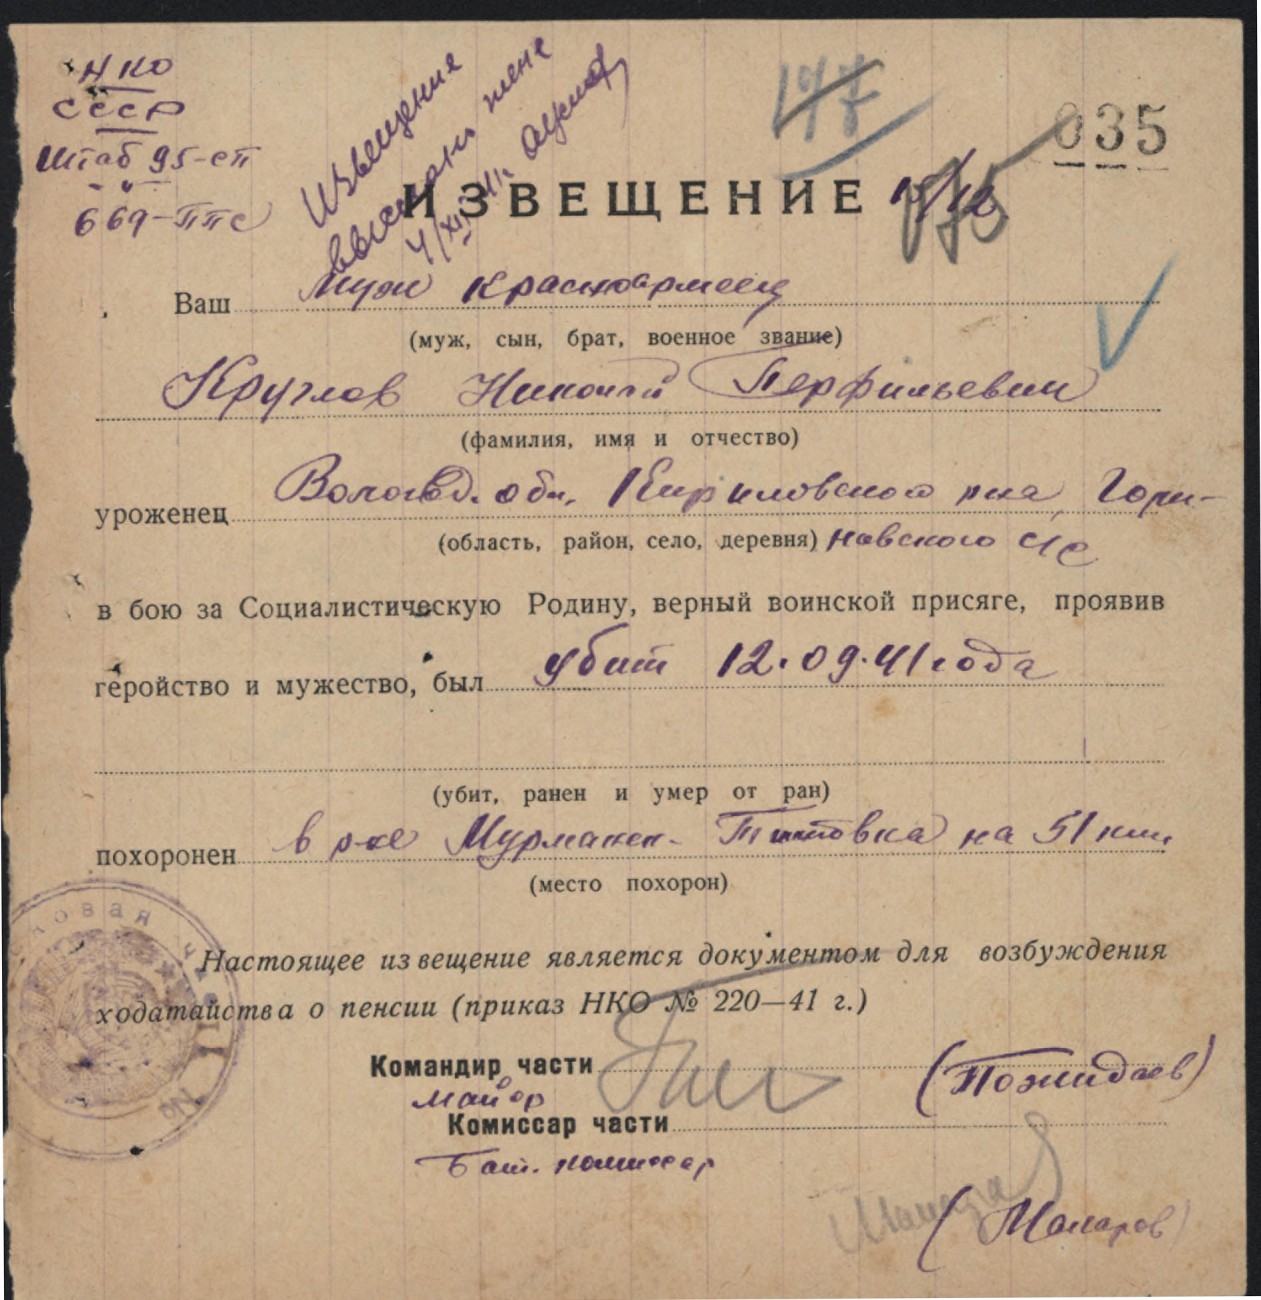 НКО
СССР
Штаб 95-сп
669-ППС
Извещение
выслано жене
4/XII 41г.
197
035
ИЗВЕЩЕНИЕ 15/12
Ваш муж красноармеец
(муж, сын, брат, военное звание)
Круглов Николай Перфильевич
(фамилия, имя и отчество)
уроженец Волог. обл. Кирилловского р-на, Гори-
(область, район, село, деревня) новского с/с
в бою за Социалистическую Родину, верный воинской присяге, проявив
геройство и мужество, был убит 12.09.41 года
(убит, ранен и умер от ран)
похоронен в р-не Мурманск-Титовка на 51 км.
(место похорон)
Настоящее извещение является документом для возбуждения
ходатайства о пенсии (приказ НКО № 220—41 г.)
Командир части (Пожидаев)
майор
Комиссар части
Бат. комиссар
(Макаров)